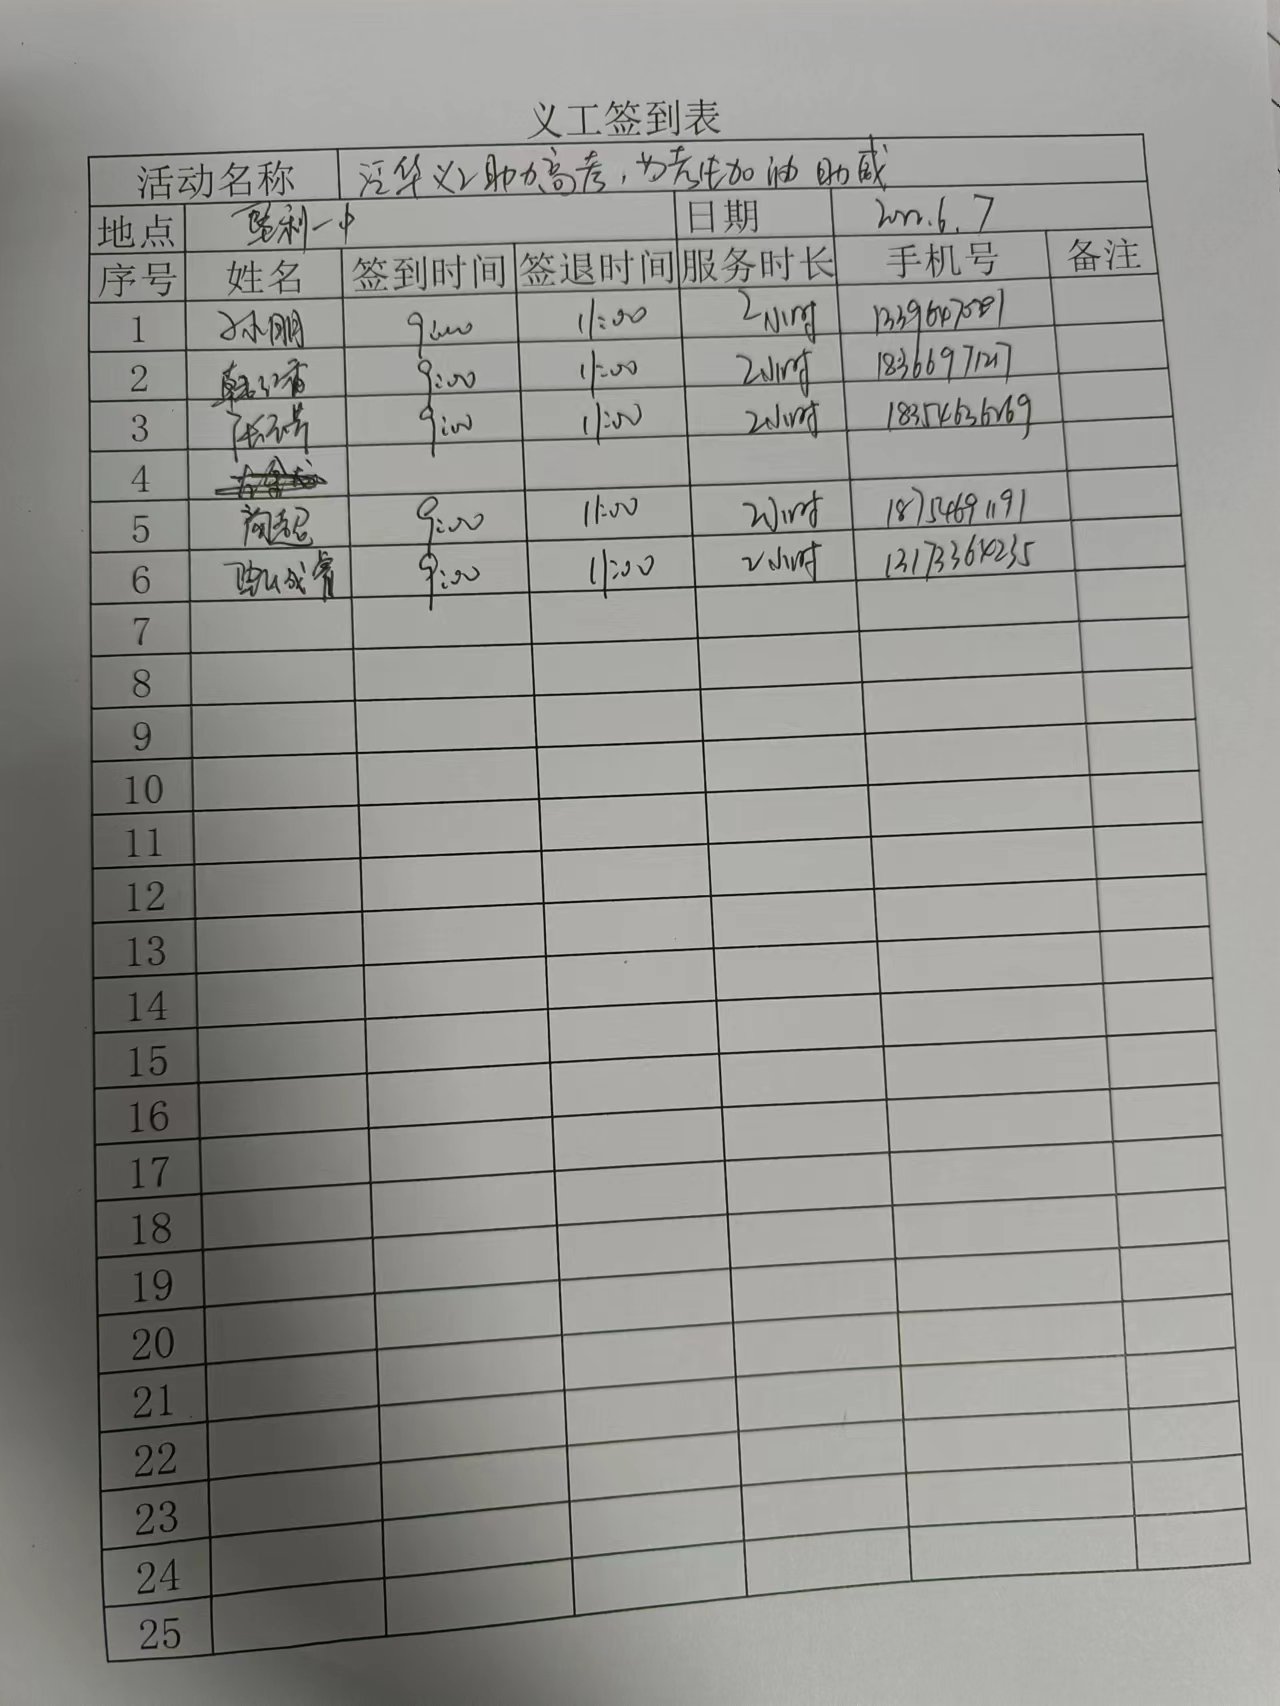 义工签到表
活动名称 泛华义工助力高考，为考生加油助威
地点 垦利一中 日期 2022.6.7
序号 姓名 签到时间 签退时间 服务时长 手机号 备注
1 孙朋 9:00 11:00 2小时
2 9:00 11:00 2小时 18366971217
3 9:00 11:00 2小时
4
5 9:00 11:00 2小时 18754691191
6 9:00 11:00 2小时 13173364235
7
8
9
10
11
12
13
14
15
16
17
18
19
20
21
22
23
24
25